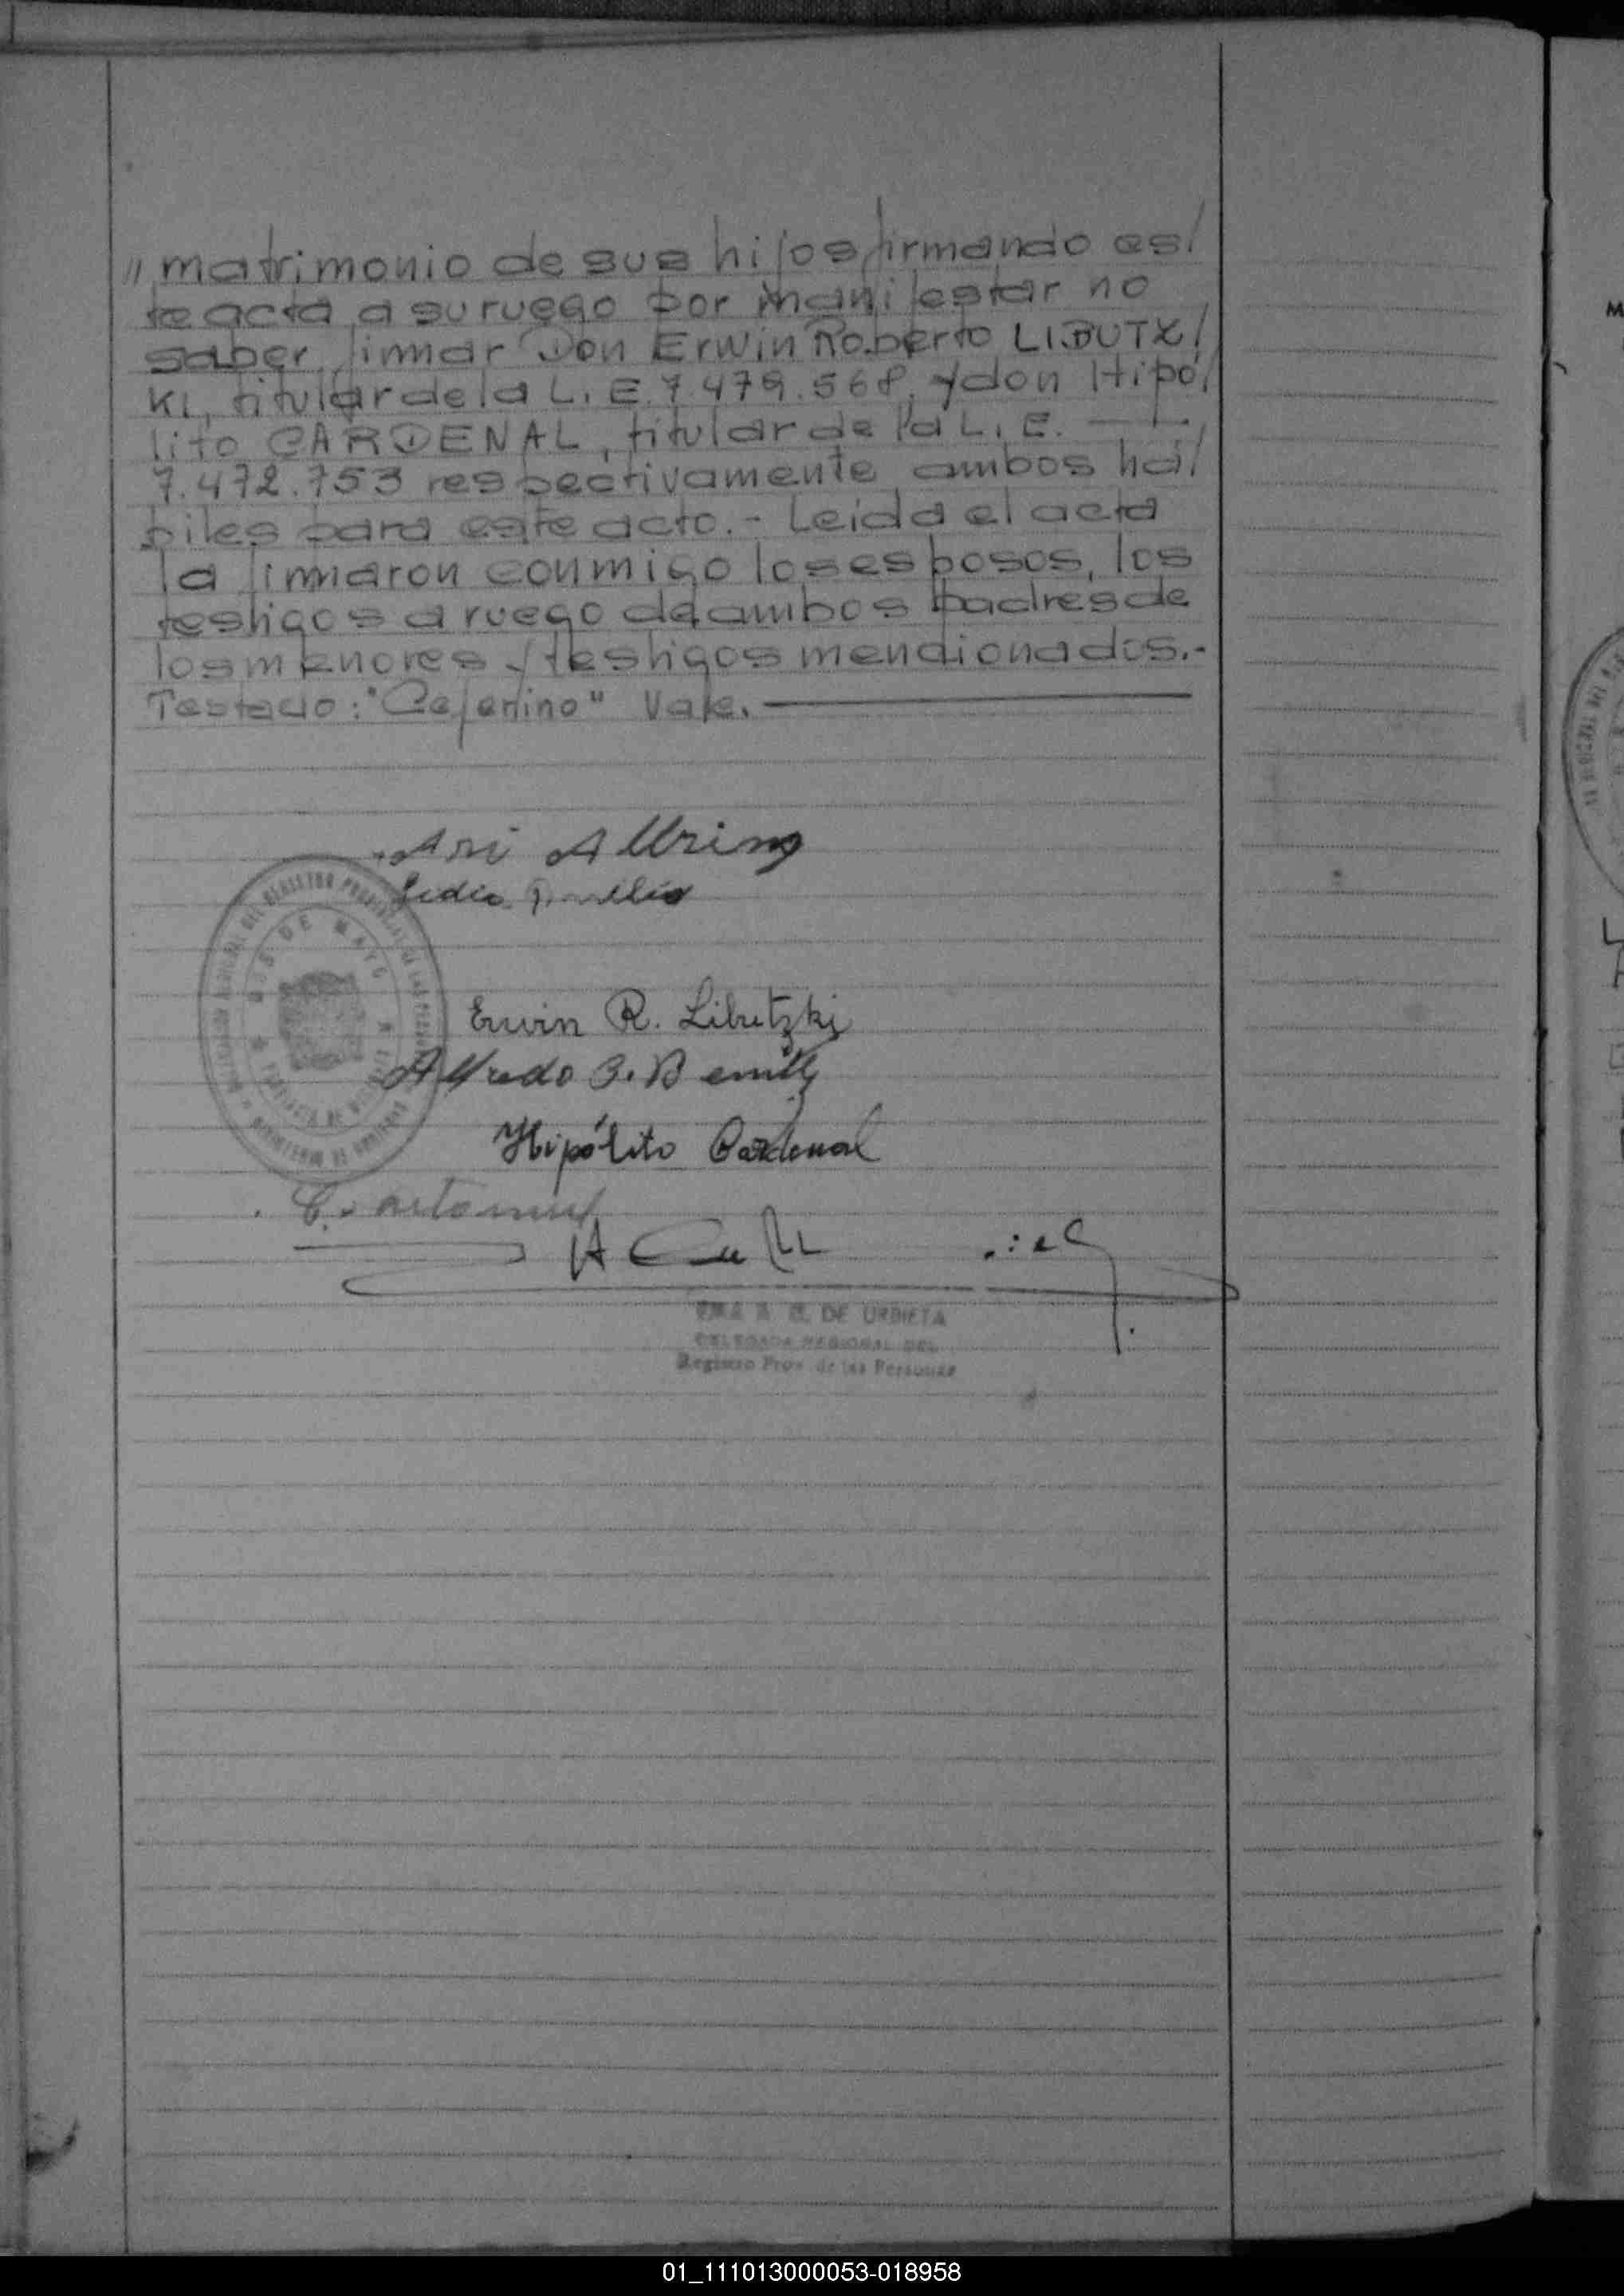 // matrimonio de sus hijos, firmando es/
te acta a su ruego por manifestar no
saber firmar Don Erwin Roberto LIBUTZ/
KI, titular de la L. E. 7.479.568, y don Hipó/
lito CARDENAL, titular de la L. E. —
7.472.753 respectivamente, ambos há/
biles para este acto.- Leida el acta
la firmaron conmigo los esposos, los
testigos a ruego de ambos padres de
los menores y testigos mencionados.-
Testado: "Ceferino" Vale. —
Ari
Erwin R. Libutzki
Alfredo
Hipólito Cardenal
DOS DE MAYO
DE URBIETA
DELEGADA REGIONAL DEL
Registro Prov. de las Personas
01_111013000053-018958